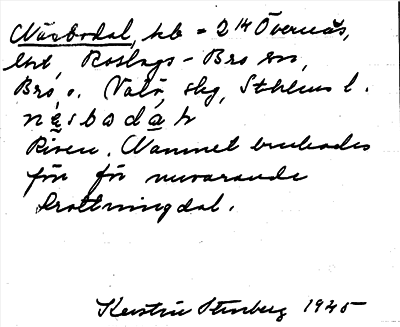 Näsbodal, hb = 2¹⁴ Övernäs,
Roslags-Bro sn,
Bro o. Vätö skg, Sthlms l.
näsbodaɫ
Riven. Namnet brukades
förr för nuvarande
Drottningdal.
Kerstin Stenberg 1945